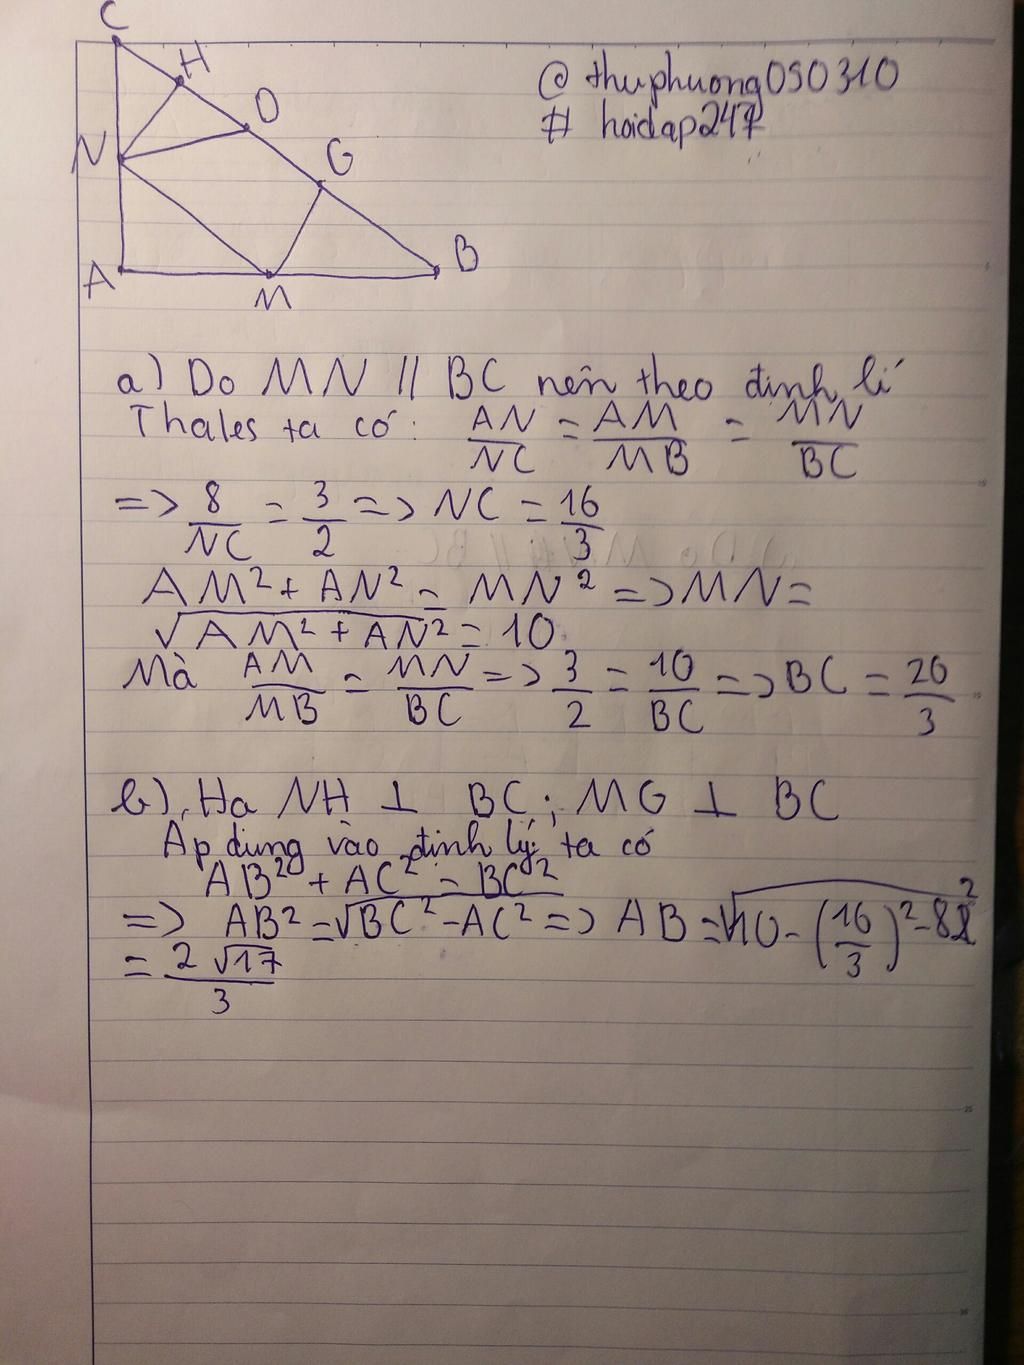 C
H
O
@ thuphuong090310
# hoidap247
N
G
A
M
B
a) Do MN // BC nên theo định lí
Thales ta có: AN/NC = AM/MB = MN/BC
=> 8/NC = 3/2 => NC = 16/3
AM² + AN² = MN² => MN =
√(AM² + AN²) = 10
Mà AM/MB = MN/BC => 3/2 = 10/BC => BC = 20/3
b), Hạ NH ⊥ BC; MG ⊥ BC
Áp dụng vào định lý: ta có
AB² + AC² = BC²
=> AB² = √(BC² - AC²) => AB = √(10 - (16/3)² - 8²)
= 2√17/3